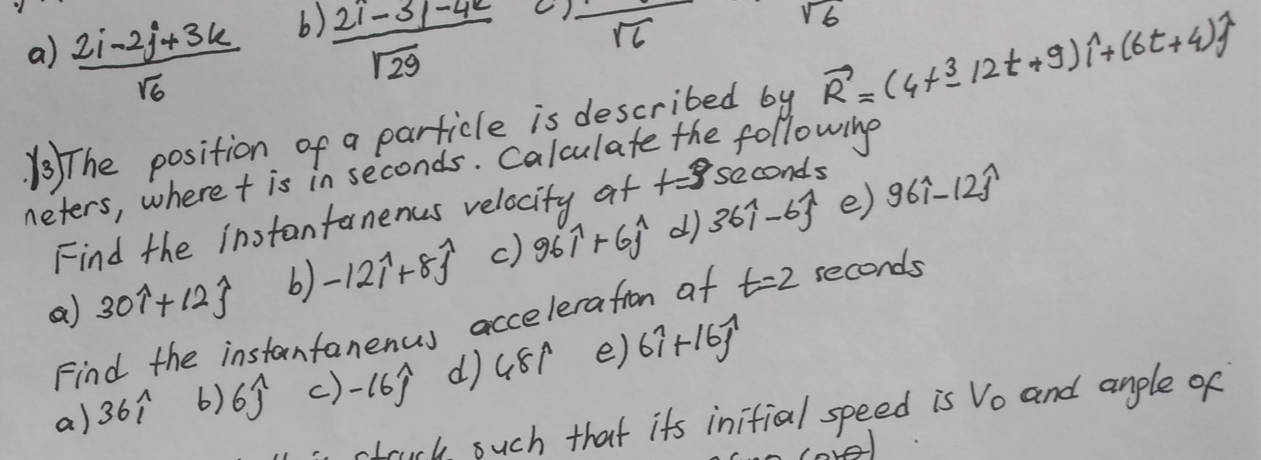 a) 2i-2j+3k / √6 b) 2î-3j-4k / √29 c) √6 √6
13) The position of a particle is described by R⃗ = (4t³-12t+9)î+(6t+4)ĵ
meters, where t is in seconds. Calculate the following
Find the instantanenus velocity at t=3 seconds
a) 30î+12ĵ b) -12î+8ĵ c) 96î+6ĵ d) 36î-6ĵ e) 96î-12ĵ
Find the instantanenus acceleration at t=2 seconds
a) 36î b) 6ĵ c) -16ĵ d) 48î e) 6î+16ĵ
struck such that its initial speed is V₀ and angle of